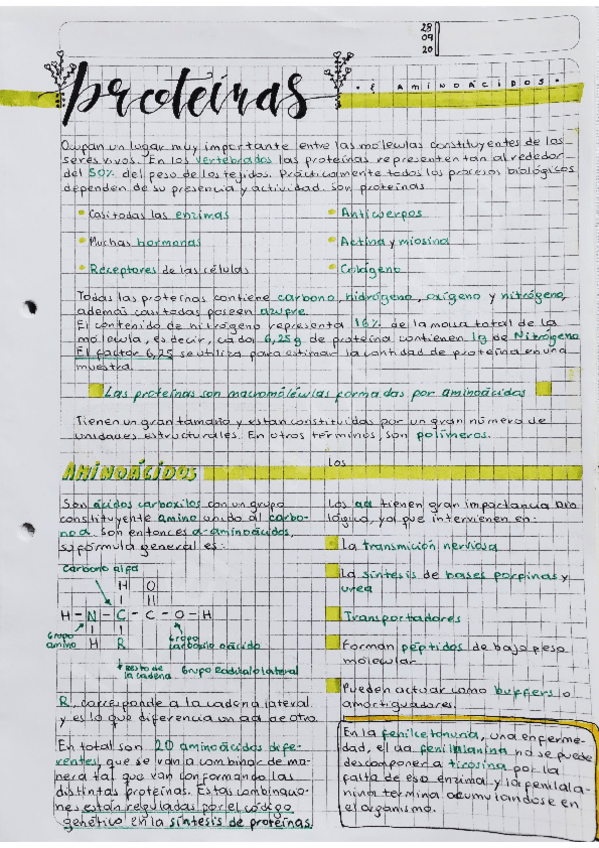 28
09
20
proteínas
& AMINOÁCIDOS
Ocupan un lugar muy importante entre las moléculas constituyentes de los
seres vivos. En los vertebrados las proteínas representen tan alrededor
del 50% del peso de los tejidos. Prácticamente todos los procesos biológicos
dependen de su presencia y actividad. Son proteínas
Casi todas las enzimas
Anticuerpos
Muchas hormonas
Actina y miosina
Receptores de las células
Colágeno
Todas las proteínas contiene carbono, hidrógeno, oxígeno y nitrógeno,
además casi todas poseen azufre.
El contenido de nitrógeno representa 16% de la masa total de la
molécula, es decir, cada 6,25g de proteína contienen 1g de Nitrógeno
El factor 6,25 se utiliza para estimar la cantidad de proteína en una
muestra.
Las proteínas son macromoléculas formadas por aminoácidos
Tienen un gran tamaño y están constituidas por un gran número de
unidades estructurales. En otros términos, son polímeros.
AMINOÁCIDOS
los
Son ácidos carboxilos con un grupo
constituyente amino unido al carbo-
no α. Son entonces α-aminoácidos,
su fórmula general es:
Carbono alfa
H O
H - N - C - C - O - H
H R
Grupo amino
Grupo carboxilo o ácido
Resto de la cadena
Grupo Radical o lateral
R, corresponde a la cadena lateral
y es lo que diferencia un aa de otro.
En total son 20 aminoácidos dife-
rentes, que se van a combinar de ma-
nera tal que van conformando las
distintas proteínas. Estas combinacio-
nes están reguladas por el código
genético en la síntesis de proteínas.
Los aa tienen gran importancia bio
lógica, ya que intervienen en:
La transmición nerviosa
La síntesis de bases porpinas y
urea
Transportadores
Forman péptidos de bajo peso
molecular
Pueden actuar como buffers o
amortiguadores.
En la fenilcetonuria, una enferme-
dad, el aa fenilalanina no se puede
descomponer a tirosina por la
falta de esa enzima y la fenilala-
nina termina acumulandose en
el organismo.